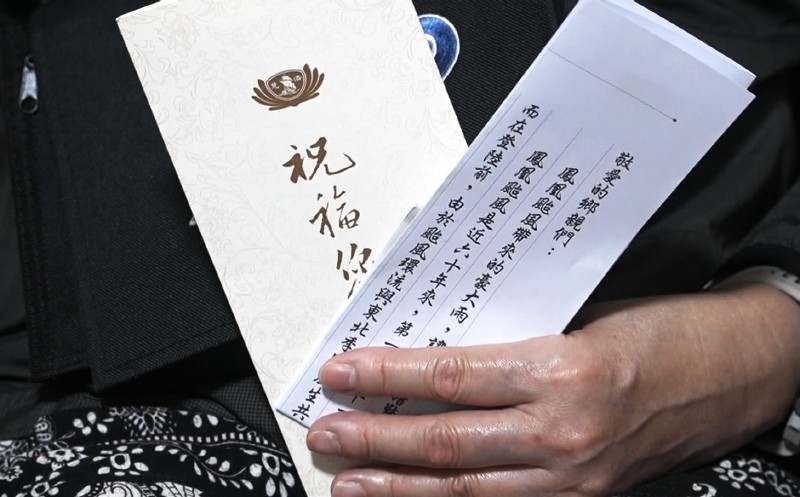 祝福您
敬愛的鄉親們：
鳳凰颱風帶來的豪大雨，
鳳凰颱風是近六十年來，第一
而在登陸前，由於颱風環流與東北季
生共